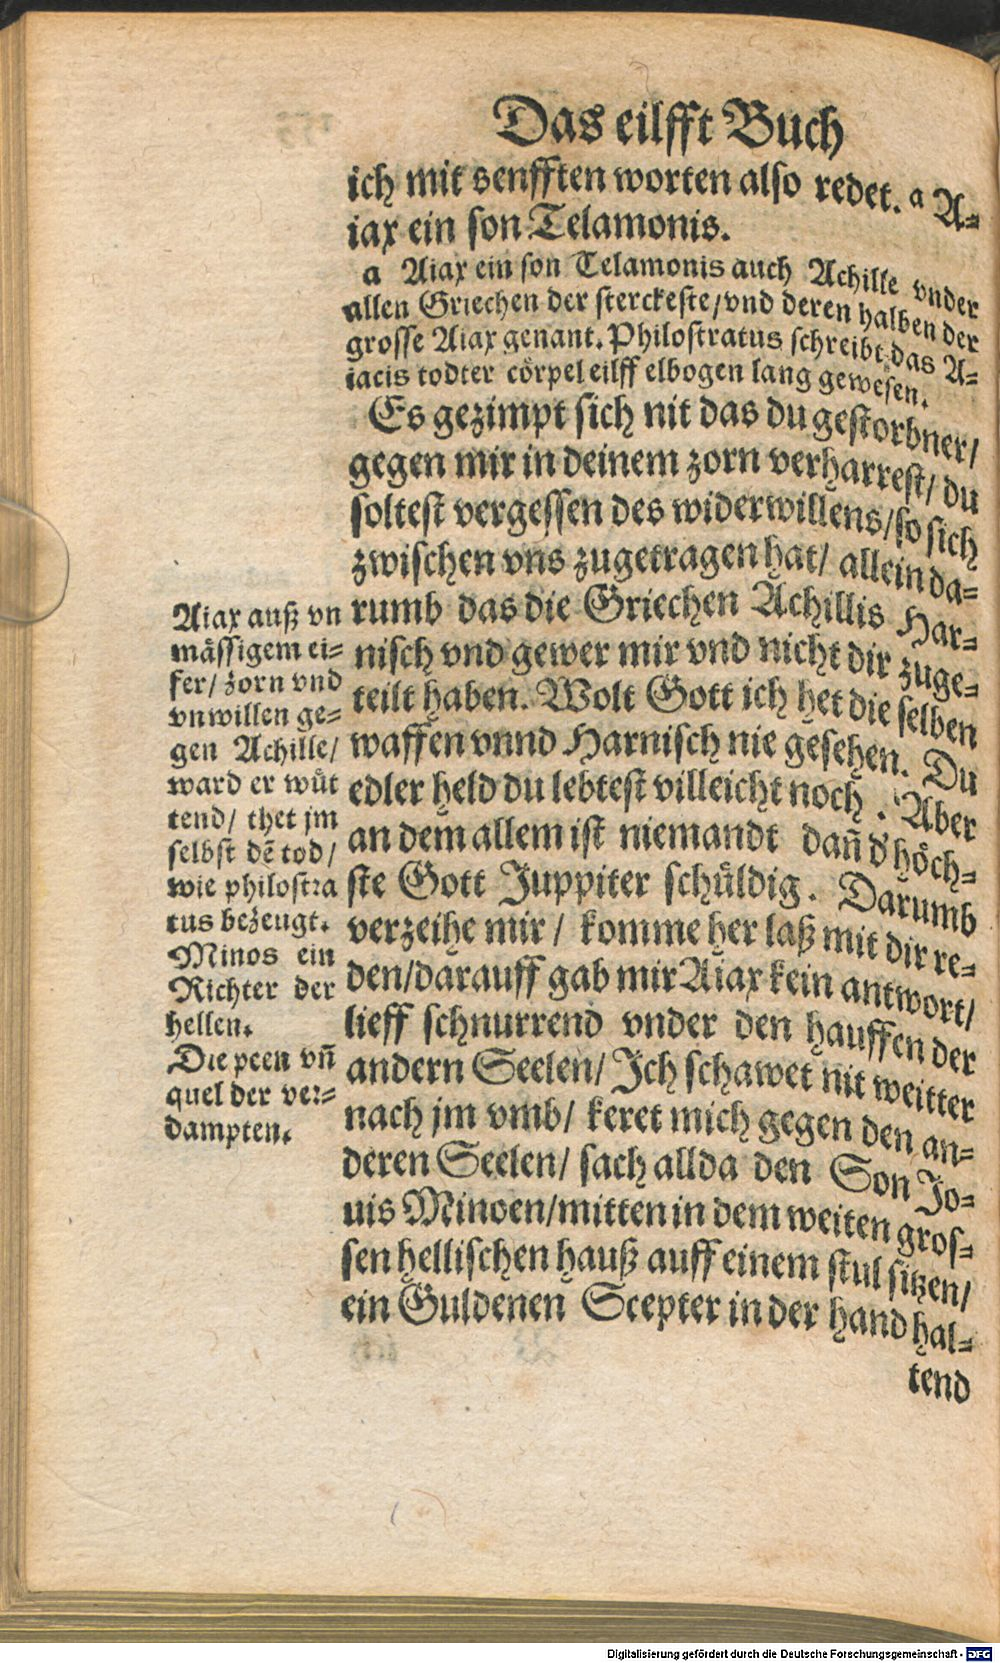 Das eilfft Buch
ich mit senfften worten also redet. a A-
iax ein son Telamonis.
a Aiax ein son Telamonis auch Achille vnder
allen Griechen der sterckeste/vnd deren halben der
grosse Aiax genant. Philostratus schreibt das A-
iacis todter cörpel eilff elbogen lang gewesen.
Es gezimpt sich nit das du gestorbner/
gegen mir in deinem zorn verharrest/ du
soltest vergessen des widerwillens/so sich
zwischen vns zugetragen hat/ allein da-
rumb das die Griechen Achillis Har-
nisch vnd gewer mir vnd nicht dir zuge-
teilt haben. Wolt Gott ich het die selben
waffen vnnd Harnisch nie gesehen. Du
edler held du lebtest villeicht noch. Aber
an dem allem ist niemandt dañ d' höch-
ste Gott Juppiter schüldig. Darumb
verzeihe mir/ komme her laß mit dir re-
den/darauff gab mir Aiax kein antwort/
lieff schnurrend vnder den hauffen der
andern Seelen/ Ich schawet nit weitter
nach jm vmb/ keret mich gegen den an-
deren Seelen/ sach allda den Son Jo-
uis Minoen/mitten in dem weiten gros-
sen hellischen hauß auff einem stul sitzen/
ein Guldenen Scepter in der hand hal-
tend
Aiax auß vn
mässigem ei-
fer/ zorn vnd
vnwillen ge-
gen Achille/
ward er wüt
tend/ thet jm
selbst dē tod/
wie philostra
tus bezeugt.
Minos ein
Richter der
hellen.
Die peen vñ
quel der ver-
dampten.
Digitalisierung gefördert durch die Deutsche Forschungsgemeinschaft - DFG